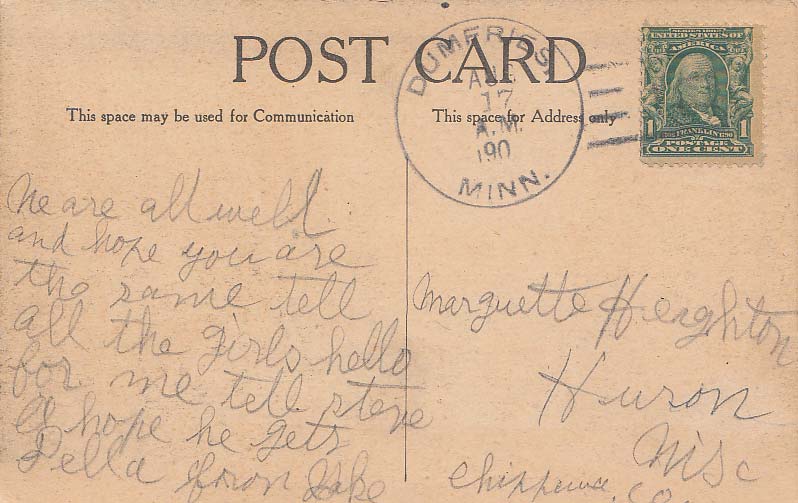 POST CARD
This space may be used for Communication
This space for Address only
DUMFRIES,
17
A.M.
190
MINN.
SERIES 1902
UNITED STATES OF AMERICA
1 FRANKLIN 1
POSTAGE
ONE CENT
We are all well
and hope you are
the same tell
all the girls hello
for me tell steve
I hope he gets
Della from
Marguette Heighton
Huron
Wisc
Chippewa Co